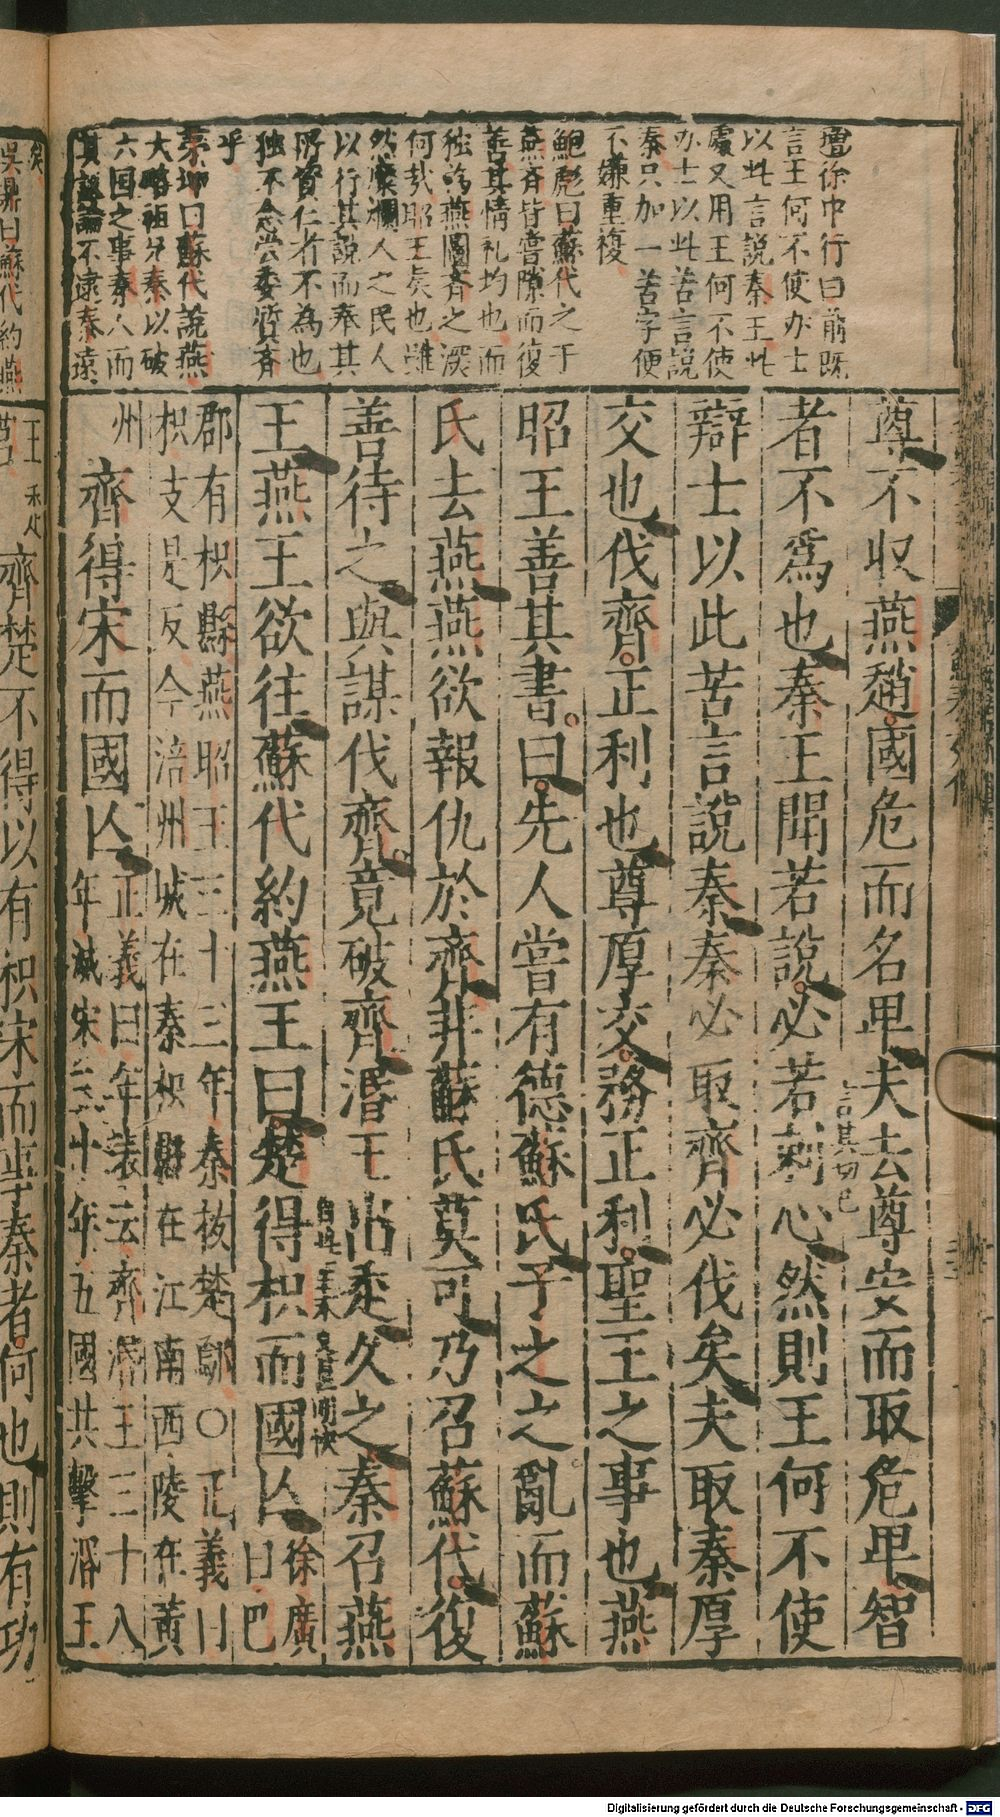 增徐中行曰前既
言王何不使办士
以此言說秦王此
處又用王何不使
办士以此苦言說
秦只加一苦字便
不嫌重複
鮑彪曰蘇代之于
燕齊皆嘗隙而復
善其情礼均也而
独為燕圖齊之深
何㢤昭王矣也雖
然糜爛人之民人
以行其說而奉其
所資仁者不為也
独不念尝委質齊
乎
茅坤曰蘇代說燕
大略祖牙秦以破
六国之事秦人而
其議論不逮秦遠
矣
吳鼎曰蘇代約燕
尊不收燕趙國危而名卑夫去尊安而取危卑智
者不爲也秦王聞若說必若刺心然則王何不使
言其切己
辯士以此苦言說秦秦必取齊必伐矣夫取秦厚
交也伐齊正利也尊厚交務正利聖王之事也燕
昭王善其書曰先人嘗有德蘇氏子之之亂而蘇
氏去燕燕欲報仇於齊非蘇氏莫可乃召蘇代復
善待之與謀伐齊竟破齊湣王出走久之秦召燕
王燕王欲往蘇代約燕王曰楚得枳而國亾
徐廣
曰巴
郡有枳縣燕昭王三十三年秦拔楚鄢〇正義曰
枳支是反今涪州城在秦枳縣在江南西陵在黃
州
齊得宋而國亾
正義曰年表云齊湣王三十八
年滅宋四十年五國共擊湣王
齊楚不得以有枳宋而事秦者何也則有功